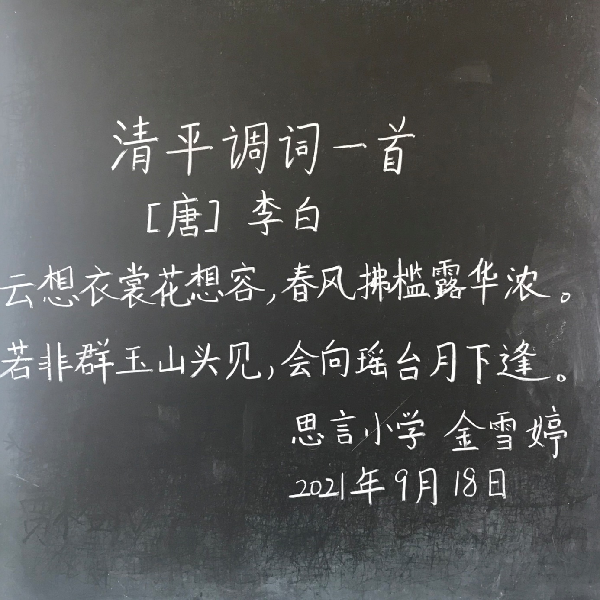 清平调词一首
[唐] 李白
云想衣裳花想容,春风拂槛露华浓。
若非群玉山头见,会向瑶台月下逢。
思言小学 金雪婷
2021年9月18日